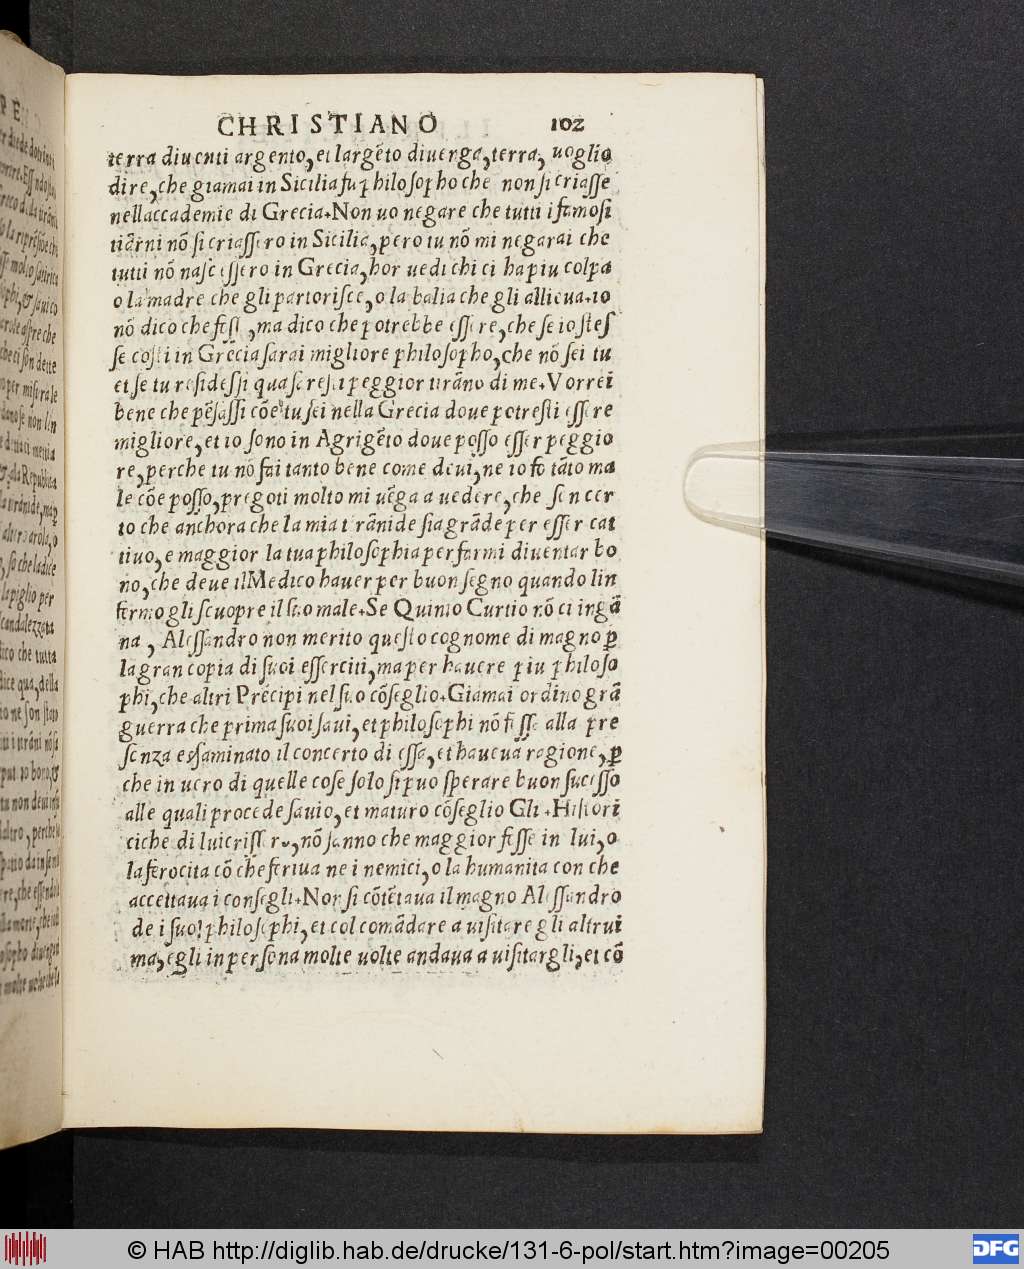 CHRISTIANO 102
terra diuenti argento, et largẽto diuerga, terra, uoglio
dire, che giamai in Sicilia fu philosopho che non si criasse
nellaccademie di Grecia. Non uo negare che tutti i famosi
tiãrni nõ si criassero in Sicilia, pero tu nõ mi negarai che
tutti nõ nascessero in Grecia, hor uedi chi ci ha piu colpa
o la madre che gli partorisce, o la balia che gli allieua. io
nõ dico che fessi, ma dico che potrebbe essere, che se io stes
se costi in Grecia sarai migliore philosopho, che nõ sei tu
et se tu residessi qua saresti peggior tirãno di me. Vorrei
bene che pẽsassi cõe tu sei nella Grecia doue potresti essere
migliore, et io sono in Agrigẽto doue posso esser peggio
re, perche tu nõ fai tanto bene come deui, ne io fo tãto ma
le cõe posso, pregoti molto mi uẽga a uedere, che sen cer
to che anchora che la mia tirãnide sia grãde per esser cat
tiuo, e maggior la tua philosophia per farmi diuentar bo
no, che deue il Medico hauer per buon segno quando lin
fermo gli scuopre il suo male. Se Quinto Curtio nõ ci ingã
na, Alessandro non merito questo cognome di magno ꝑ
la gran copia di suoi esserciti, ma per hauere piu philoso
phi, che altri Prẽcipi nel suo cõseglio. Giamai ordino grã
guerra che prima suoi saui, et philosophi nõ fusse alla pre
senza essaminato il concerto di essa, et haueua ragione, ꝑ
che in uero di quelle cose solo si puo sperare buon sucesso
alle quali procede sauio, et maturo cõseglio Gli. Historí
ci che di lui crissero, nõ sanno che maggior fesse in lui, o
la ferocita cõ che feriua ne i nemici, o la humanita con che
accettaua i consegli. Non si cõtẽtaua il magno Alessandro
de i suoi philosophi, et col comãdare a uisitare gli altrui
ma, egli in persona molte uolte andaua a uisitargli, et cõ
© HAB http://diglib.hab.de/drucke/131-6-pol/start.htm?image=00205
DFG